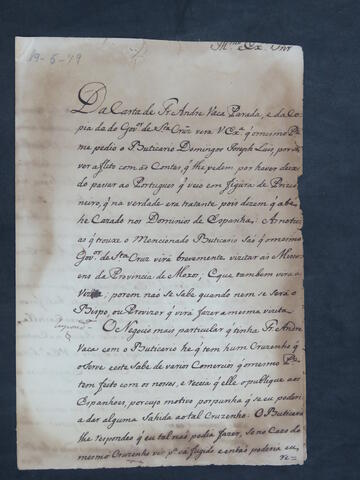 19-5-79
Illmo Ex. Snr
Da Carta de Fr. Andre Vaca Parada, e da Co
pia da do Govor. de Sta. Cruz verá V. Exa. q̃ o mesmo Pe.
me pedio o Buticario Domingos Joseph Luis, por
ver aflito com as Contas, q̃ lhe pedem por haver deixa
do pasar ao Portugues q̃ veio em figura de Prizio
neiro, q̃ na verdade era tratante pois dizem q̃ abe
he Cazado nos Dominios de Espanha: A noticia
as q̃ trouxe o Mencionado Buticario saõ q̃ o mesmo
Govor. de Sta. Cruz virá brevemente vizitar as Missoens
ens da Provincia de Moxos; e que tambem virá a
Vizita; porem naõ se sabe quando nem se será o
Bispo, ou Provizor q̃ virá fazer a mesma vizita
O Negocio mais particular q̃ tinha Fr. Andre
Vaca com o Buticario he q̃ tem hum Cruzenho q̃
o serve este Sabe de varios Comercios q̃
tem feito com os nosos, e receia q̃ elle o publique aos
Espanhoes, por cujo motivo porpunha q̃ se eu poderia
a dar alguma Sahida ao tal Cruzenho. O Buticario
lhe respondeo q̃ eu tal naõ podia fazer, se no Cazo do
mesmo Cruzenho vir pa. cá fugido entaõ poderia eu
re=